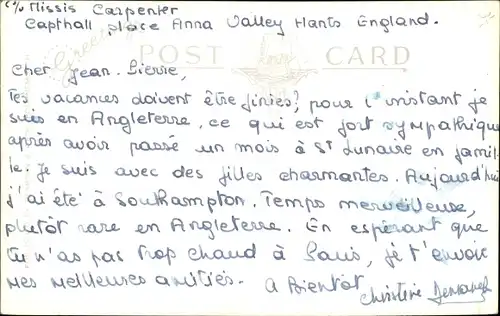 c/o Missis Carpenter
Capthall place Anna Valley Hants England.
Greetings
POST CARD
Cher Jean-Pierre,
Tes vacances doivent être finies? pour l'instant je
suis en Angleterre, ce qui est fort sympathique
après avoir passé un mois à St Lunaire en famil-
le. Je suis avec des filles charmantes. Aujourd'hui
j'ai été à Southampton. Temps merveilleuse,
plutôt rare en Angleterre. En espérant que
tu n'as pas trop chaud à Paris, je t'envoie
mes meilleures amitiés. A Bientôt
Christine